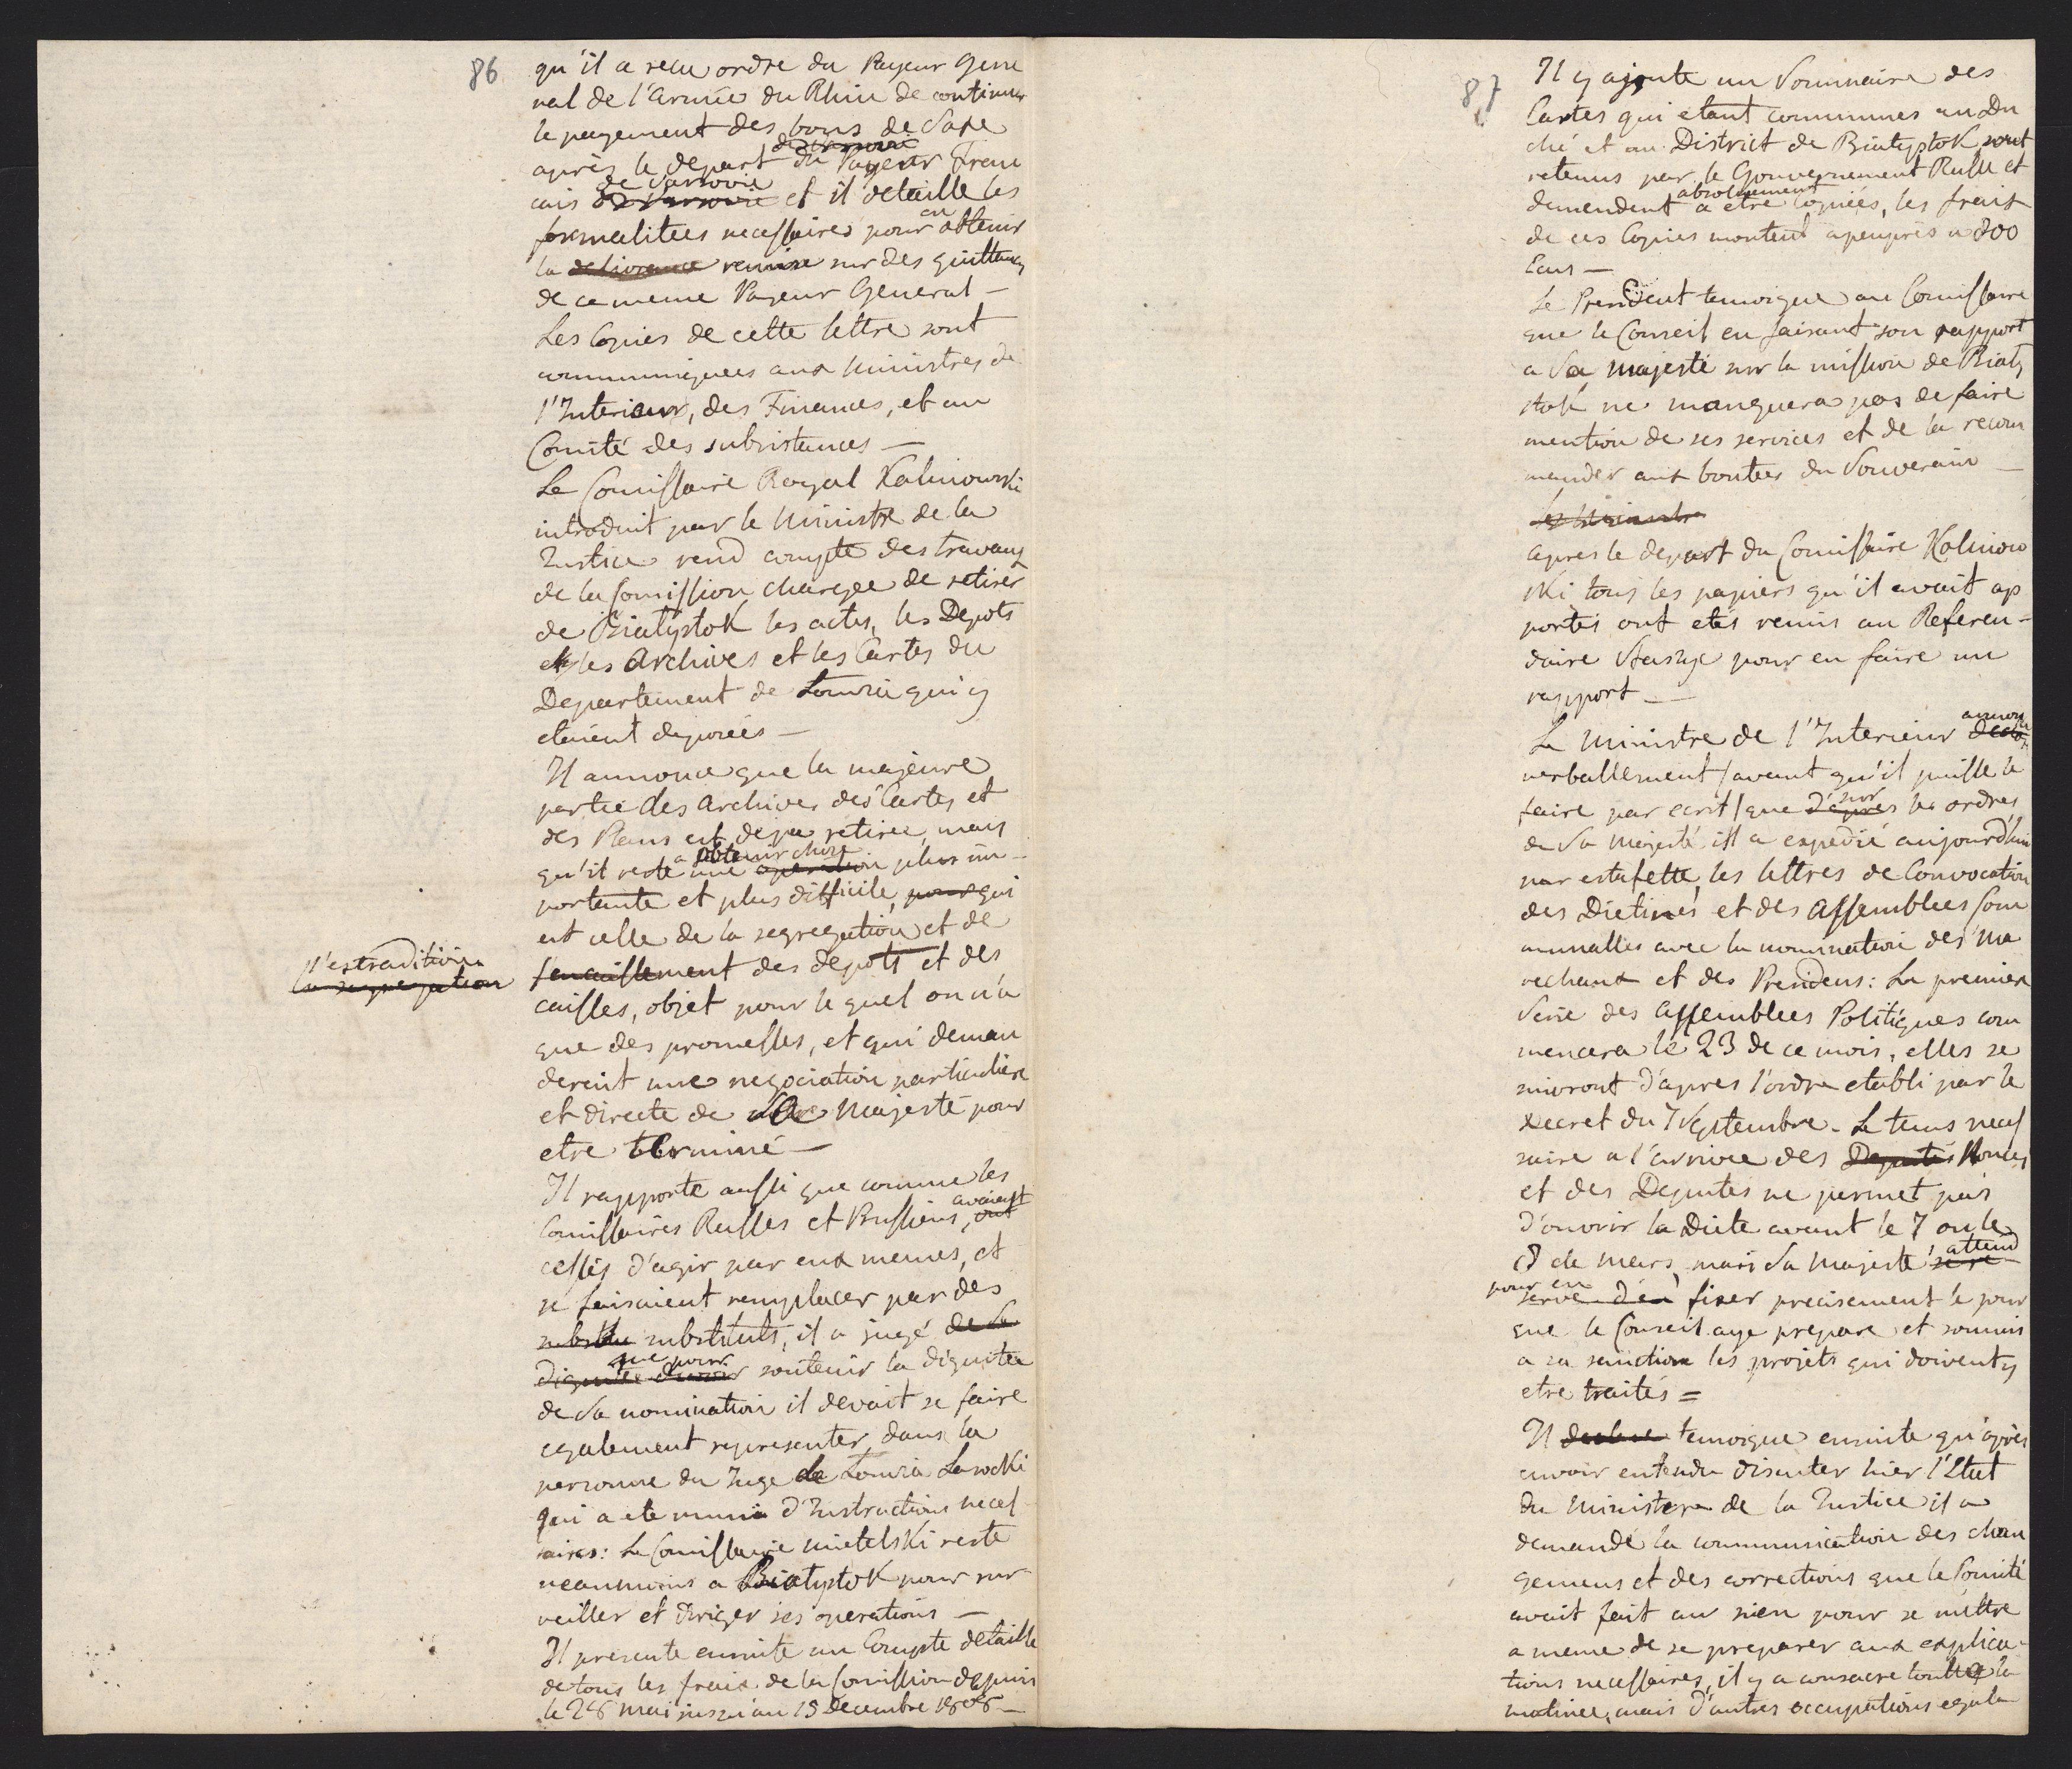 86
qu'il a recu ordre du Payeur Gene
ral de l'Armée du Rhin de continuer
le payement des bons de Saxe
de Varsovie
après le depart du Payeur Fran
de Varsovie
cais de Varsovie et il detaille les
en
formalitees necessaires pour obtenir
la delivrance remise sur des quittances
de ce meme Payeur General —
Les Copies de cette lettre sont
communiquees aux Ministres de
l'Interieur, des Finances, et au
Comité des subsistances —
Le Comissaire Royal Kalinowski
introduit par le Ministre de la
Justice rend compte des travaux
de la Comission chargee de retirer
de Białystok les actes, les Depots
et les Archives et les Cartes du
Departement de Łomża qui y
etaient deposées —
Il annonce que la majeure
partie des Archives des Cartes et
des Plans est deja retirée, mais
a obtenir chose
qu'il reste une operation plus im-
portante et plus difficile, pour qui
est celle de la segregation et de
l'extradition
la segregation
l'encaissement des depots et des
caisses, objet pour le quel on n'a
que des promesses, et qui deman
deroit une negociation particuliere
et directe de Sa Majesté pour
etre terminé —
Il rapporte aussi que comme les
avaient
Comissaires Russes et Prussiens, ont
cessés d'agir par eux memes, et
se faisaient remplacer par des
substitu substituts, il a jugé de sa
que pour
dignitée devoir soutenir la dignitée
de Sa nomination il devait se faire
egalement representer, dans la
personne du Juge de Łomża Lasocki
qui a ete muni d'Instructions neces
saires: Le Comissaire Mietelski reste
neanmoins a Białystok pour sur
veiller et diriger ses operations —
Il presente ensuite un Compte detaillé
de tous les frais de la Comission depuis
le 28 Mai jusqu'au 15 Decembre 1808 —
87
Il y ajoute un Sommaire des
Cartes qui etant communes au Du
ché et au District de Białystok sont
retenus par le Gouvernement Russe et
absolument
demandent a etre copiées, les frais
de ces Copies montent apeuprès a 800
Ecus —
Le President temoigne au Comissaire
que le Conseil en faisant son rapport
a Sa Majesté sur la mission de Biały
stok ne manquera pas de faire
mention de ses services et de la recom
mander aux bontées du Souverain —
Le Ministre
apres le depart du Comissaire Kalinow
ski tous les papiers qu'il avait ap
portés ont etés remis au Referen-
daire Staszyc pour en faire un
rapport —
annonce
Le Ministre de l'Interieur
verballement /avant qu'il puisse le
sur
faire par ecrit/ que d'apres les ordres
de Sa Majesté il a expedié aujourd'hui
par estafette, les lettres de Convocation
des Dietines et des Assemblees Com
munalles avec la nomination des Ma
rechaux et des Presidens: La premiere
Serie des Assemblees Politiques com
mencera le 23 de ce mois, elles se
suivront d'apres l'ordre etabli par le
Decret du 7 Septembre. Le tems neces
saire a l'arrivée des Deputés Nonces
et des Deputes ne permet pas
d'ouvrir la Diete avant le 7 ou le
attend
8 de Mars, mais Sa Majesté se re-
pour en
serve d'en fixer precisement le jour
que le Conseil aye preparé et soumis
a sa sanction les projets qui doivent y
etre traités =
Il declare temoigne ensuite qu'après
avoir entendu discuter hier l'Etat
du Ministere de la Justice il a
demandé la communication des chan
gemens et des corrections que le Comité
avait fait au sien pour se mettre
a meme de se preparer aux explica-
tions necessaires, il y a consacre toute la
matinée, mais d'autres occupations egale